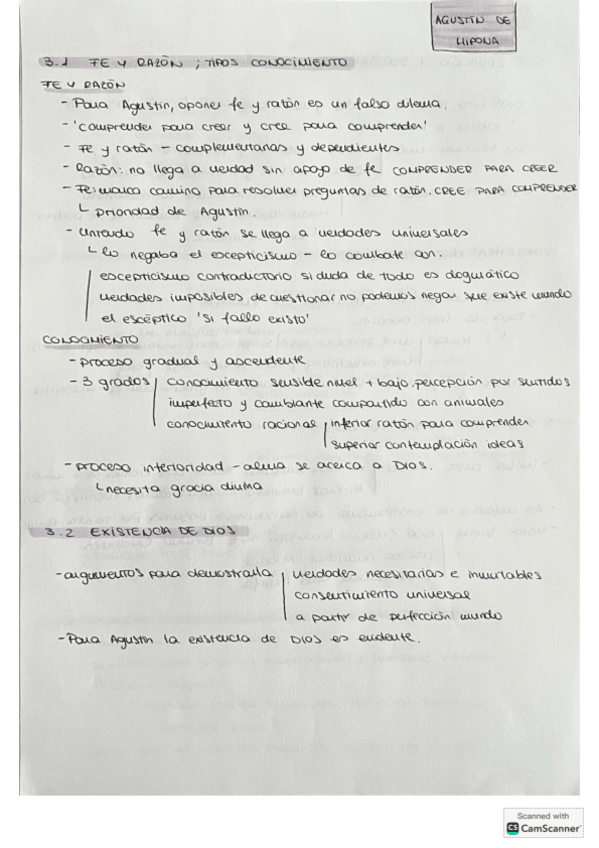 AGUSTÍN DE
HIPONA
3.1 FE Y RAZÓN ; TIPOS CONOCIMIENTO
FE Y RAZÓN
- Para Agustín, oponer fe y razón es un falso dilema.
- 'comprender para creer y cree para comprender'
- Fe y razón - complementarias y dependientes
- Razón: no llega a verdad sin apoyo de fe COMPRENDER PARA CREER
- Fe: marca camino para resolver preguntas de razón. CREE PARA COMPRENDER
└ prioridad de Agustín.
- Uniendo fe y razón se llega a verdades universales
└ lo negaba el escepticismo - lo combate con:
escepticismo contradictorio si duda de todo es dogmático
verdades imposibles de cuestionar no podemos negar que existe mundo
el escéptico 'si fallo existo'
CONOCIMIENTO
- proceso gradual y ascendente
- 3 grados conocimiento sensible nivel + bajo. percepción por sentidos
imperfecto y cambiante compartido con animales
conocimiento racional inferior razón para comprender
superior contemplación ideas
- proceso interioridad - alma se acerca a Dios.
└ necesita gracia divina
3.2 EXISTENCIA DE DIOS
- argumentos para demostrarla verdades necesitarias e inmutables
consentimiento universal
a partir de perfección mundo
- Para Agustín la existencia de DIOS es evidente.
Scanned with
CS CamScanner